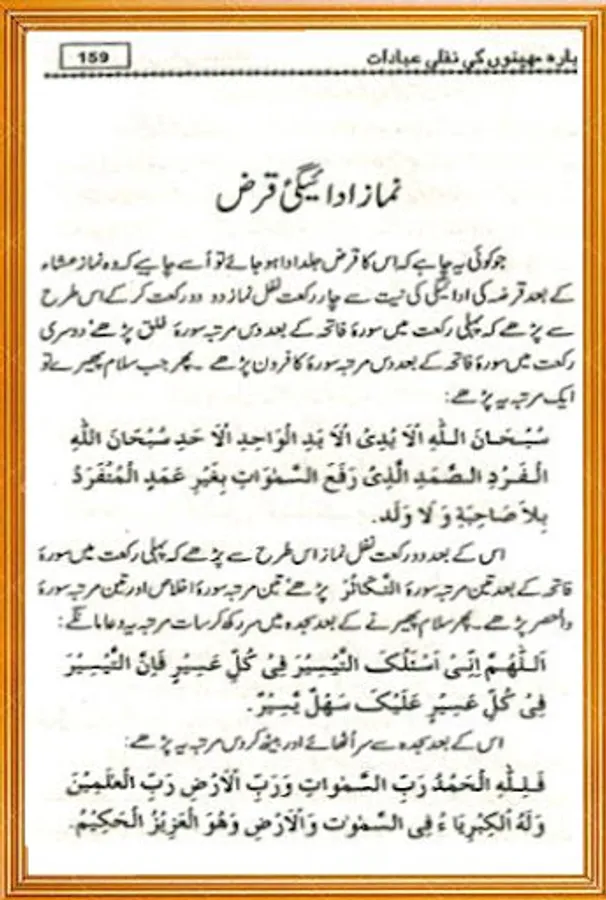 159
بارہ مہینوں کی نفلی عبادات
نماز ادائیگیٔ قرض
جو کوئی یہ چاہے کہ اس کا قرض جلد ادا ہو جائے تو اُسے چاہیے کہ وہ نماز عشاء
کے بعد قرضہ کی ادائیگی کی نیت سے چار رکعت نفل نماز دو دو رکعت کر کے اس طرح
سے پڑھے کہ پہلی رکعت میں سورۂ فاتحہ کے بعد دس مرتبہ سورۂ فلق پڑھے' دوسری
رکعت میں سورۂ فاتحہ کے بعد دس مرتبہ سورۂ کافرون پڑھے ۔ پھر جب سلام پھیرے تو
ایک مرتبہ یہ پڑھے:
سُبْحَانَ اللّٰهِ اْلاَ بُدِیْ اْلاَ بَدِ الْوَاحِدِ اْلاَ حَدِ سُبْحَانَ اللّٰهِ
الْفَرْدِ الصَّمَدِ الَّذِیْ رَفَعَ السَّمٰوَاتِ بِغَیْرِ عَمَدٍ الْمُنْفَرَدُ
بِلاَ صَاحِبَةِ وَ لَا وَلَد.
اس کے بعد دو رکعت نفل نماز اس طرح سے پڑھے کہ پہلی رکعت میں سورۂ
فاتحہ کے بعد تین مرتبہ سورۂ التَّکَاثُرُ پڑھے' تین مرتبہ سورۂ اخلاص اور تین مرتبہ سورۂ
والعصر پڑھے ۔ پھر سلام پھیرنے کے بعد سجدہ میں سر رکھ کر سات مرتبہ یہ دعا مانگے:
اَللّٰهُمَّ اِنِّیْ اَسْئَلُکَ التَّیْسِیْرَ فِیْ کُلِّ عَسِیْرٍ فَاِنَّ التَّیْسِیْرَ
فِیْ کُلِّ عَسِیْرٍ عَلَیْکَ سَهْلٌ یَّسِیْرٌ.
اس کے بعد سجدہ سے سر اُٹھائے اور بیٹھ کر دس مرتبہ یہ پڑھے:
فَلِلّٰهِ الْحَمْدُ رَبِّ السَّمٰوَاتِ وَرَبِّ اْلاَرْضِ رَبِّ الْعٰلَمِیْنَ
وَلَهُ الْکِبْرِیَا ءُ فِی السَّمٰوٰت وَاْلاَرْضِ وَهُوَ الْعَزِیْزُ الْحَکِیْمُ.